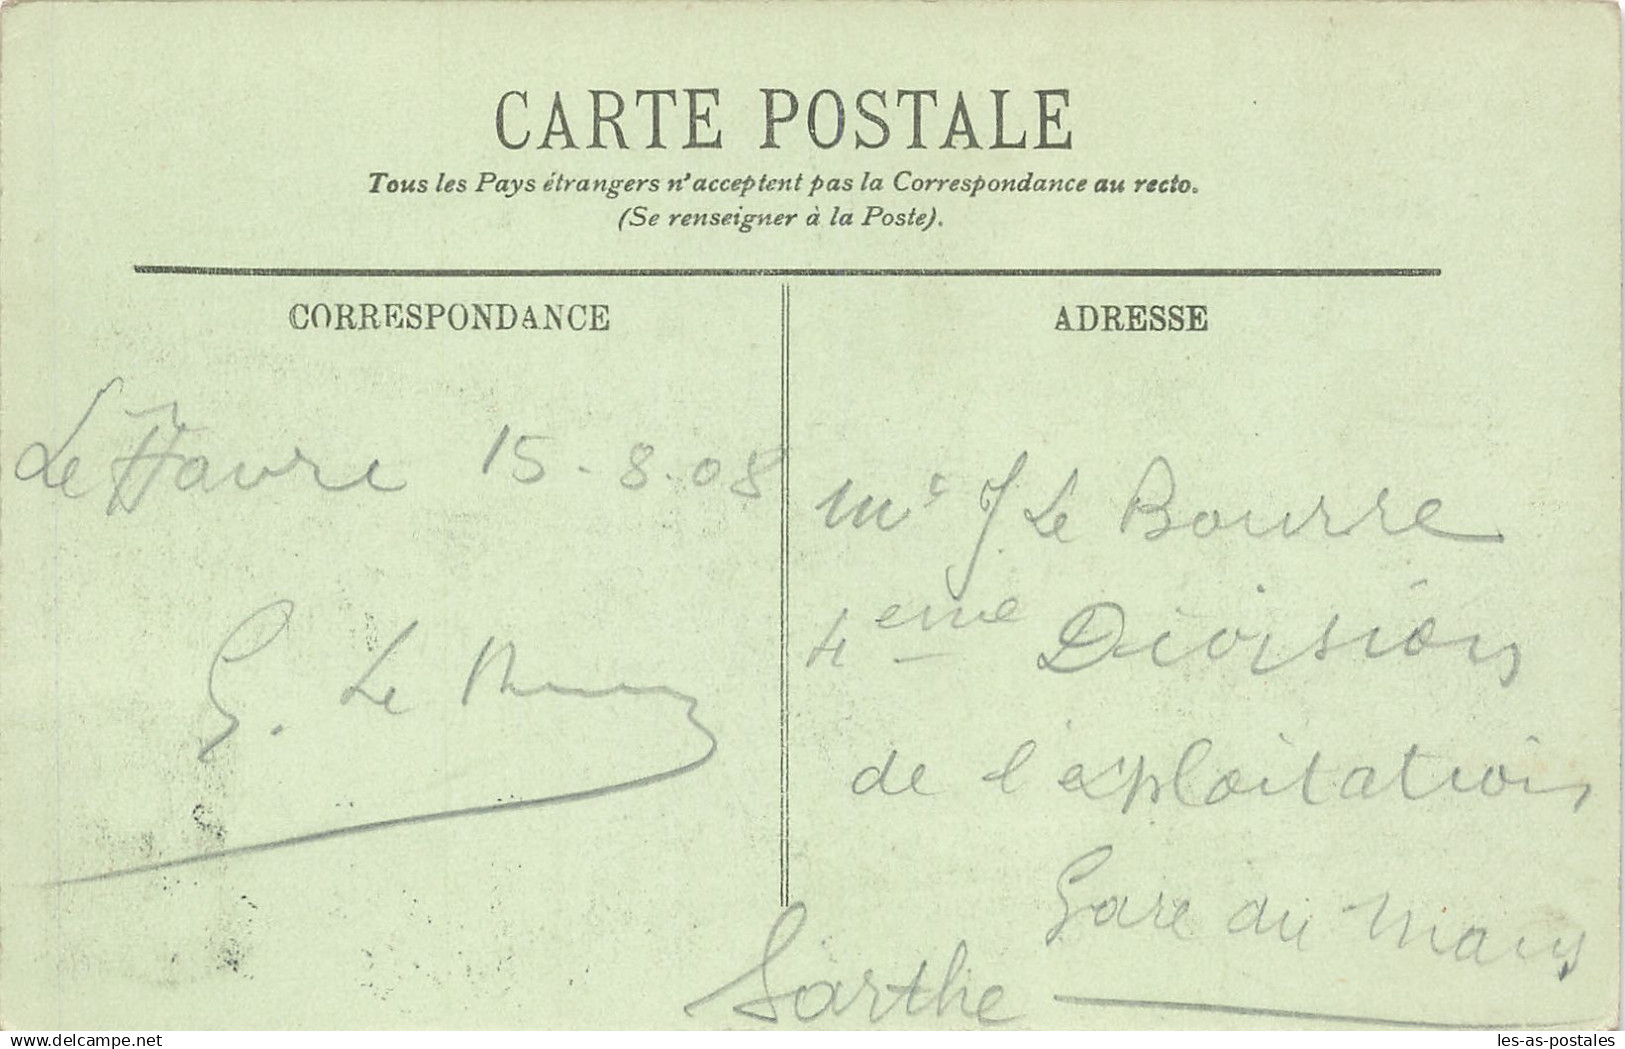 CARTE POSTALE
Tous les Pays étrangers n'acceptent pas la Correspondance au recto.
(Se renseigner à la Poste).
CORRESPONDANCE
Le Havre 15-8-08
G. Le
ADRESSE
Mr J. Le Bourre
4eme Division
de l'exploitation
Gare du Mans
Sarthe
delcampe.net
les-as-postales